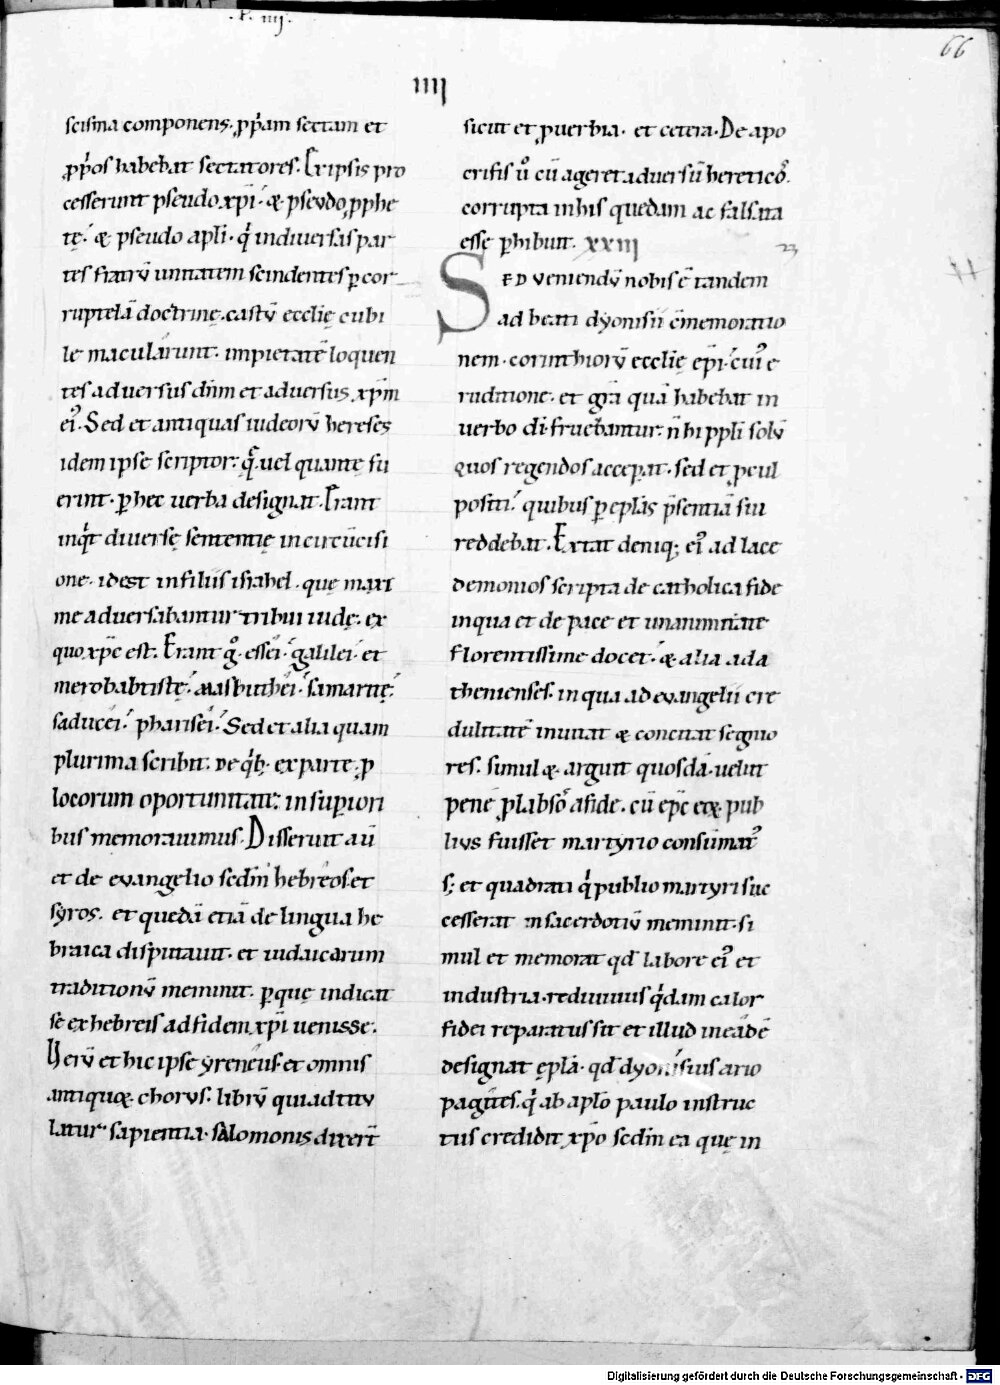 .P. iiij.
66
IIII
scisma componens. ꝓp̄am sectam et
ꝓp̄os habebat sectatores. Ex ipsis pro
cesserunt pseudo xp̄i. ⁊ pseudo ꝓphe
tę. ⁊ pseudo apl̄i. q̇ in diversas par
tes fratrū unitatem scindentes ꝑ cor
ruptelā doctrinę. castū ecclię cubi
le macularunt. impietatē loquen
tes adversus dn̄m et adversus xp̄m
ei᷒. Sed et antiquas iudeorū hereses
idem ipse scriptor. q̨ uel quantę fu
erint. ꝑ hec uerba designat. Erant
inq̇t diversę sententię in circūcisi
one. id est in filiis israhel. quę maxi
me adversabantur tribui iudę. ex
quo xp̄c est. Erant g̊ essei. galilei. et
merobabtistę. masbuthei. samaritę.
saducei. pharisei. Sed et alia quam
plurima scribit. De q̇b; ex parte ꝓ
locorum oportunitate in supiori
bus memoravimus. Disseruit aū
et de evangelio sedm̄ hebreos. et
syros. et quedā etiā de lingua he
braica disputavit. et iudaicarum
traditionū meminit. ꝑ quę indicat
se ex hebreis ad fidem xp̄i uenisse.
Verū et hic ipse yreneus. et omnis
antiquoꝝ chorus. librū qui adtitu
latur sapientia salomonis dixert̄
sicut et ꝓuerbia. et cetera. De apo
crifis ů cū ageret adversū hereticos.
corrupta in his quedam ac falsata
esse ꝑhibuit. XXIII
23
Sed veniendū nobis ē tandem
ad beati dyonisii cōmemoratio
nem. corinthiorū ecclię ep̄i. cui᷒ e
ruditione. et grā quā habebat in
uerbo di fruebantur. n̄ hi ppl̄i solū
quos regendos accepat. sed et ꝓcul
positi. quibus ꝑ epl̄as p̄sentiā sui
reddebat. Extat deniq; ei᷒ ad lace
demonios scripta de catholica fide
in qua et de pace et unanimitate
florentissime docet. ⁊ alia ad a
thenienses. in qua ad evangelii cre
dulitatē invitat ⁊ concitat segnio
res. simul ⁊ arguit quosdā. velut
pene ꝓlapsos a fide. cū ep̄c eoꝝ pub
lius fuisset martyrio consūmat᷒
s; et quadrati q̇ publio martyri suc
cesserat in sacerdotiū meminit. si
mul et memorat qd̄ labore ei᷒ et
industria. redivivus q̇dam calor
fidei reparatus sit et illud in eadē
designat epl̄a. qd̄ dyonisius ario
pagites. q̇ ab apl̄o paulo instruc
tus credidit xp̄o sedm̄ ea quę in
Digitalisierung gefördert durch die Deutsche Forschungsgemeinschaft - DFG